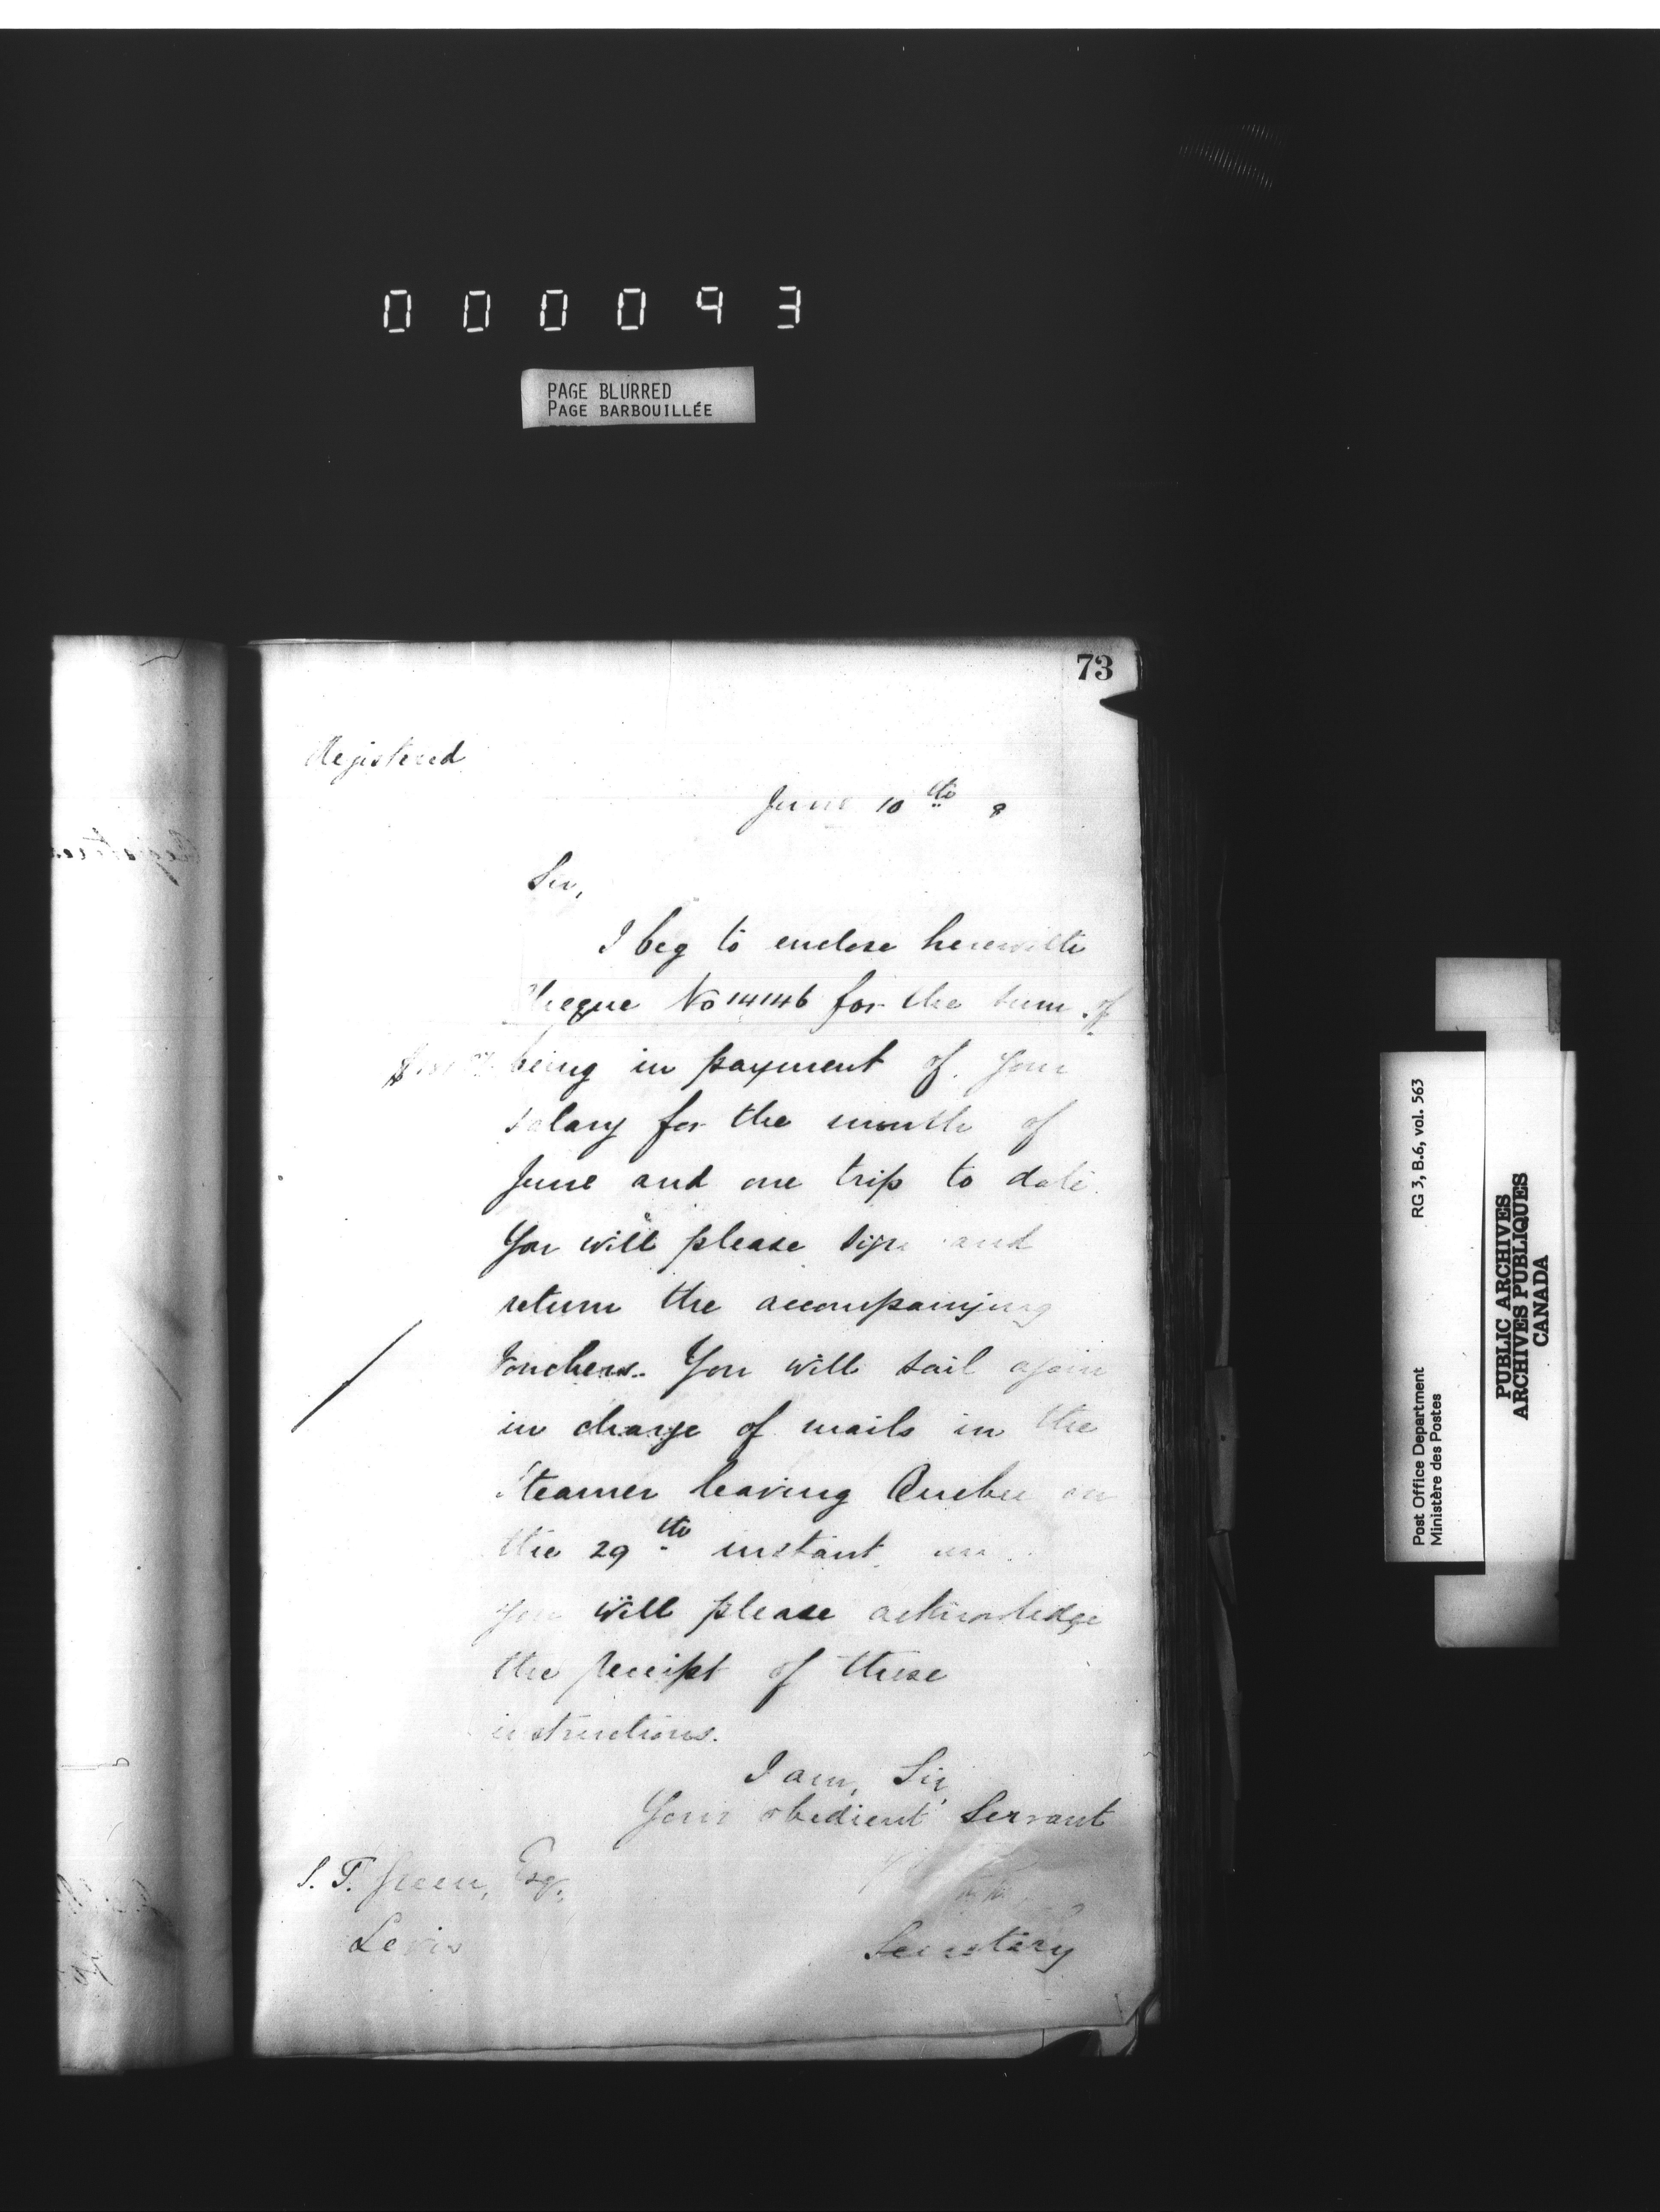 000093
PAGE BLURRED
PAGE BARBOUILLÉE
73
Registered
June 10th 8
Sir,
I beg to enclose herewith
Cheque No 14146 for the sum of
being in payment of your
salary for the month of
June and one trip to date.
You will please sign and
return the accompanying
Vouchers. You will sail again
in charge of mails in the
Steamer leaving Quebec on
the 29th instant
you will please acknowledge
the receipt of these
instructions.
I am, Sir,
Your obedient Servant
S. T. Green, Esq.
Levis
Secretary
Post Office Department RG 3, B.6, vol. 563
Ministère des Postes
PUBLIC ARCHIVES
ARCHIVES PUBLIQUES
CANADA